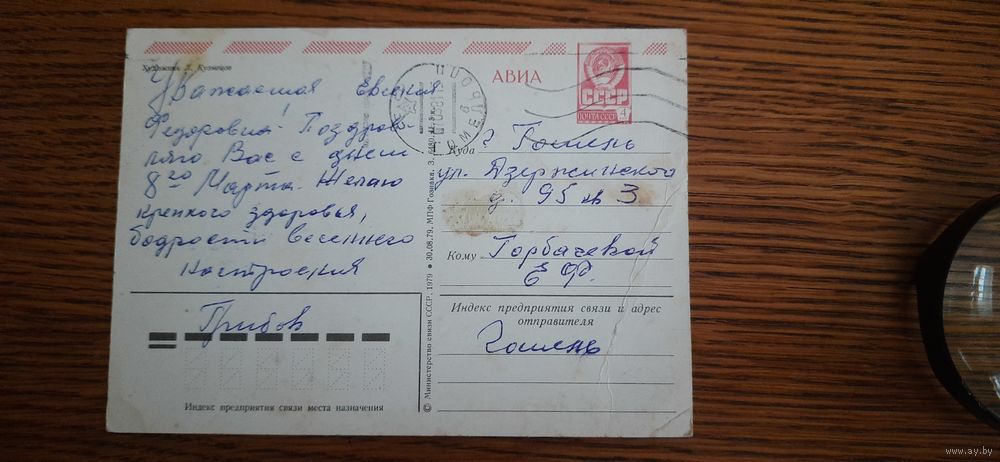 Художник Л. Кузнецов
АВИА
СССР
ПОЧТА СССР
4
Уважаемая Евгения
Федоровна! Поздрав-
ляю Вас с днем
8го Марта. Желаю
крепкого здоровья,
бодрости весеннего
настроения
Грибов
Индекс предприятия связи места назначения
© Министерство связи СССР, 1979 ● 30.08.79. МПФ Гознака.
Куда г Гомель
ул. Дзержинского
д. 95 кв 3
Кому Горбачевой
Е Ф.
Индекс предприятия связи и адрес
отправителя
Гомель
www.ay.by